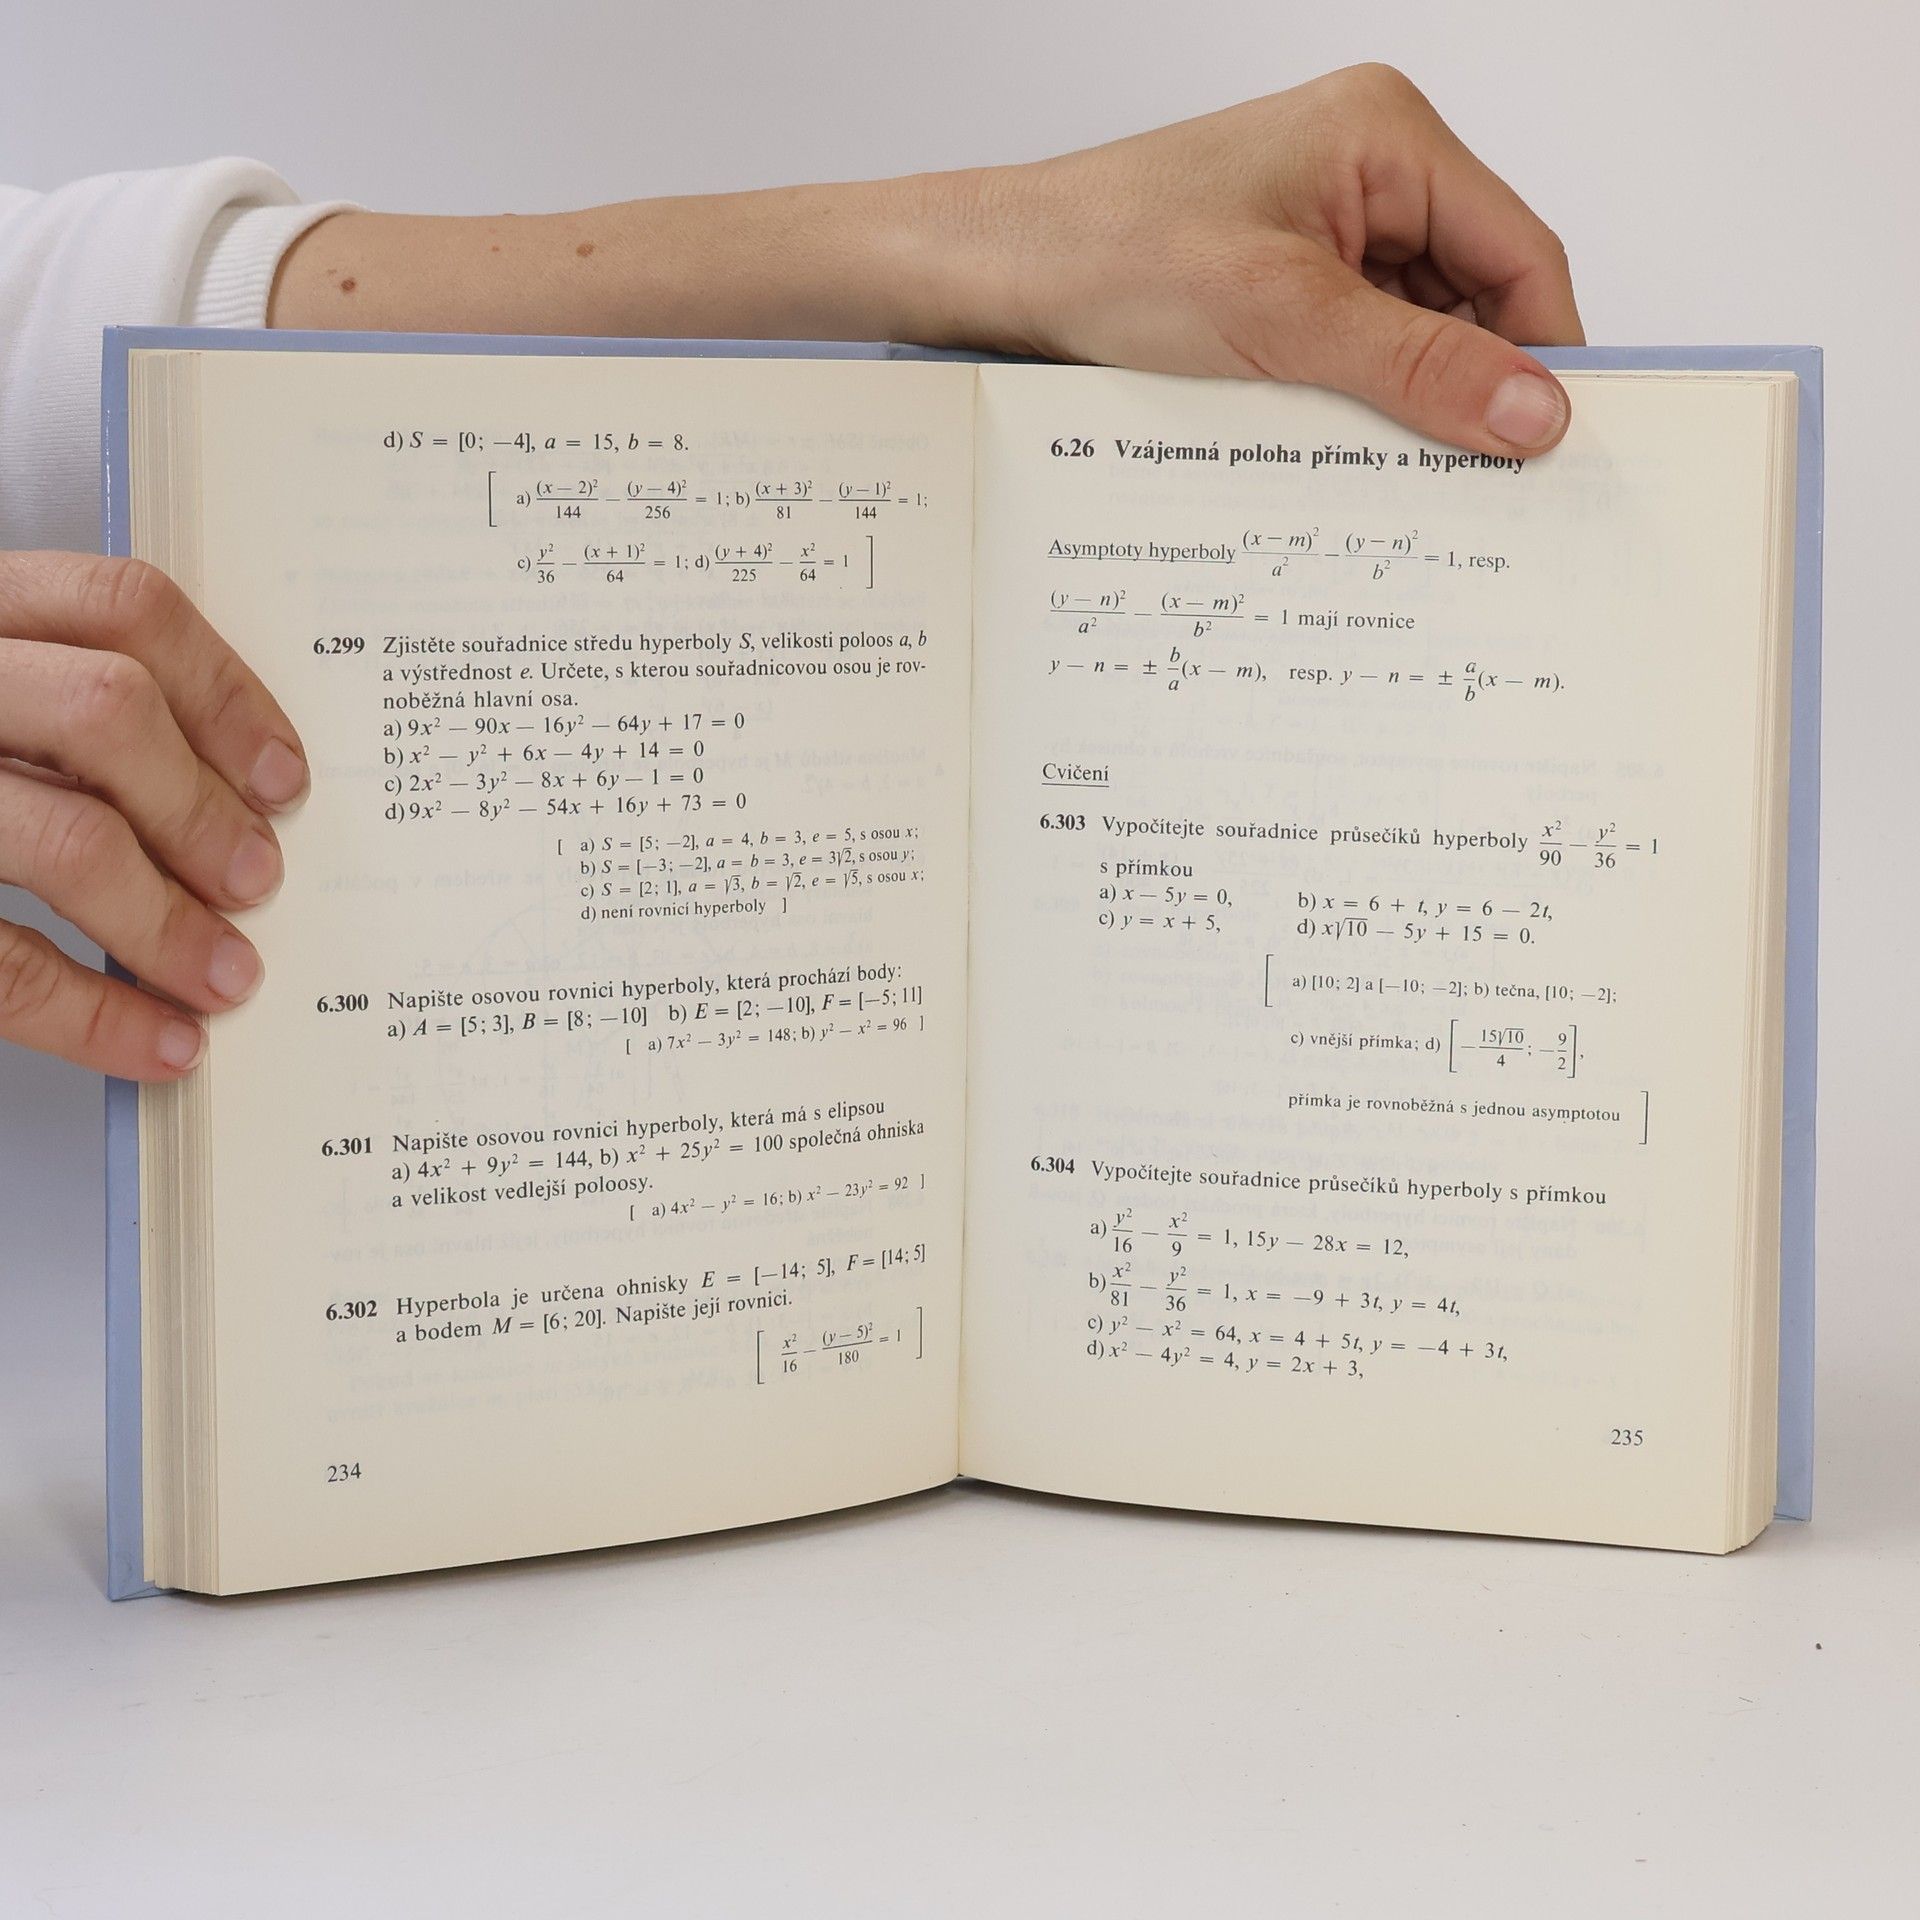 d) S = [0; —4], a = 15, b = 8.
[ a) (x — 2)²/144 — (y — 4)²/256 = 1; b) (x + 3)²/81 — (y — 1)²/144 = 1;
c) y²/36 — (x + 1)²/64 = 1; d) (y + 4)²/225 — x²/64 = 1 ]
6.299 Zjistěte souřadnice středu hyperboly S, velikosti poloos a, b
a výstřednost e. Určete, s kterou souřadnicovou osou je rov-
noběžná hlavní osa.
a) 9x² — 90x — 16y² — 64y + 17 = 0
b) x² — y² + 6x — 4y + 14 = 0
c) 2x² — 3y² — 8x + 6y — 1 = 0
d) 9x² — 8y² — 54x + 16y + 73 = 0
[ a) S = [5; —2], a = 4, b = 3, e = 5, s osou x;
b) S = [—3; —2], a = b = 3, e = 3√2, s osou y;
c) S = [2; 1], a = √3, b = √2, e = √5, s osou x;
d) není rovnicí hyperboly ]
6.300 Napište osovou rovnici hyperboly, která prochází body:
a) A = [5; 3], B = [8; —10] b) E = [2; —10], F = [—5; 11]
[ a) 7x² — 3y² = 148; b) y² — x² = 96 ]
6.301 Napište osovou rovnici hyperboly, která má s elipsou
a) 4x² + 9y² = 144, b) x² + 25y² = 100 společná ohniska
a velikost vedlejší poloosy.
[ a) 4x² — y² = 16; b) x² — 23y² = 92 ]
6.302 Hyperbola je určena ohnisky E = [—14; 5], F = [14; 5]
a bodem M = [6; 20]. Napište její rovnici.
[ x²/16 — (y — 5)²/180 = 1 ]
234
6.26 Vzájemná poloha přímky a hyperboly
Asymptoty hyperboly (x — m)²/a² — (y — n)²/b² = 1, resp.
(y — n)²/a² — (x — m)²/b² = 1 mají rovnice
y — n = ± b/a (x — m), resp. y — n = ± a/b (x — m).
Cvičení
6.303 Vypočítejte souřadnice průsečíků hyperboly x²/90 — y²/36 = 1
s přímkou
a) x — 5y = 0, b) x = 6 + t, y = 6 — 2t,
c) y = x + 5, d) x√10 — 5y + 15 = 0.
[ a) [10; 2] a [—10; —2]; b) tečna, [10; —2];
c) vnější přímka; d) [—15√10/4; —9/2],
přímka je rovnoběžná s jednou asymptotou ]
6.304 Vypočítejte souřadnice průsečíků hyperboly s přímkou
a) y²/16 — x²/9 = 1, 15y — 28x = 12,
b) x²/81 — y²/36 = 1, x = —9 + 3t, y = 4t,
c) y² — x² = 64, x = 4 + 5t, y = —4 + 3t,
d) x² — 4y² = 4, y = 2x + 3,
235